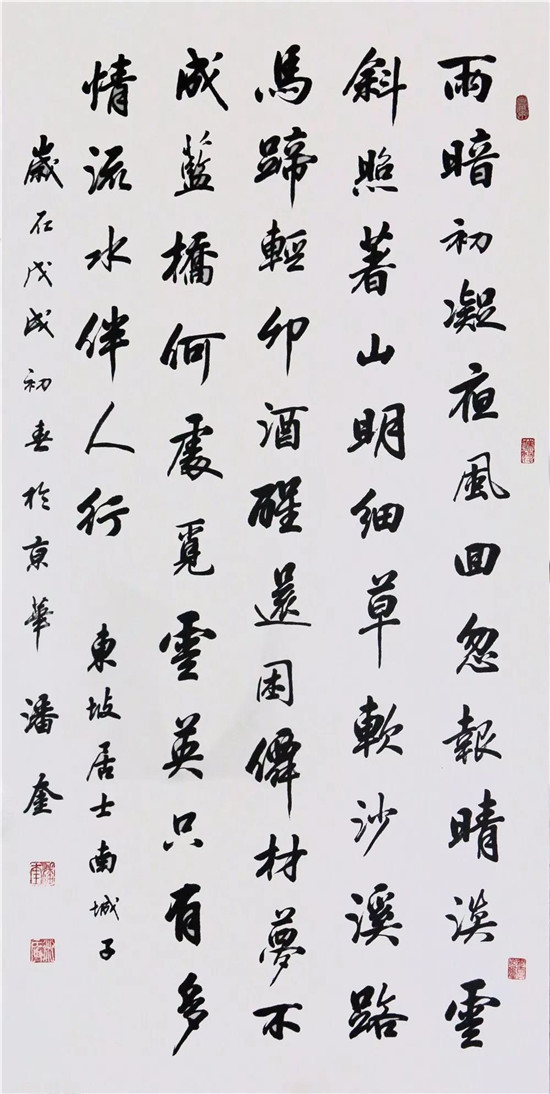 雨暗初凝夜風回忽報晴淡雲
斜照著山明細草軟沙溪路
馬蹄輕卯酒醒還困僊材夢不
成藍橋何處覓雲英只有多
情流水伴人行 東坡居士南城子
歲在戊戌初春於京華潘奎